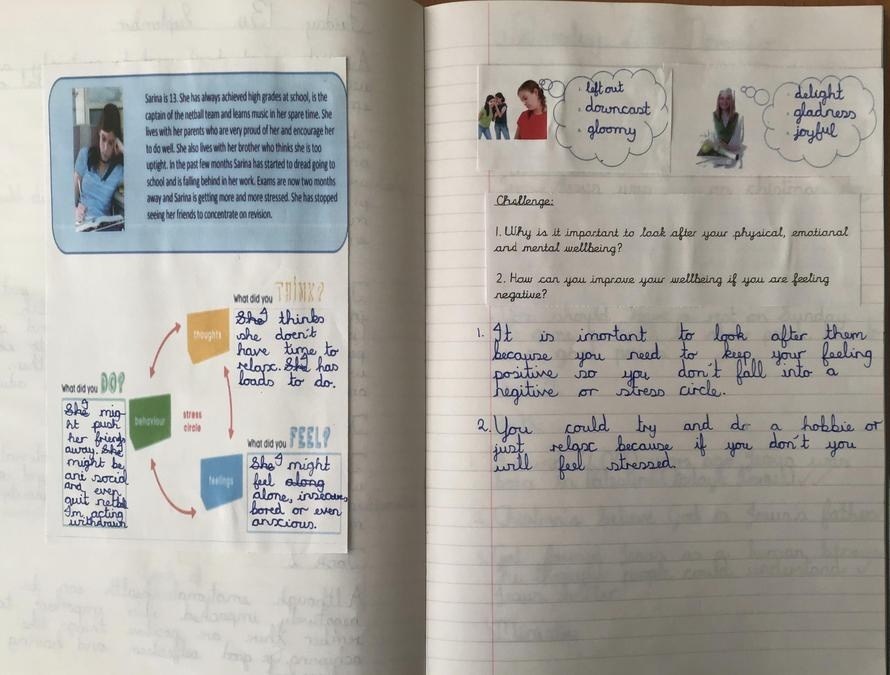 Sarina is 13. She has always achieved high grades at school, is the
captain of the netball team and learns music in her spare time. She
lives with her parents who are very proud of her and encourage her
to do well. She also lives with her brother who thinks she is too
uptight. In the past few months Sarina has started to dread going to
school and is falling behind in her work. Exams are now two months
away and Sarina is getting more and more stressed. She has stopped
seeing her friends to concentrate on revision.
What did you THINK?
thoughts
She thinks
she doen't
have time to
relax. She has
loads to do.
What did you DO?
behaviour
stress
circle
She mig-
ht push
her friends
away. She
might be
ani social
and even
quit netball
I'm acting
withdrawn
What did you FEEL?
feelings
She might
feel along
alone, insecure,
bored or even
anxcious.
left out
downcast
gloomy
delight
gladness
joyful
Challenge:
1. Why is it important to look after your physical, emotional
and mental wellbeing?
2. How can you improve your wellbeing if you are feeling
negative?
1. It is imortant to look after them
because you need to keep your feeling
positive so you don't fall into a
negitive or stress circle.
2. You could try and do a hobbie or
just relax because if you don't you
will feel stressed.